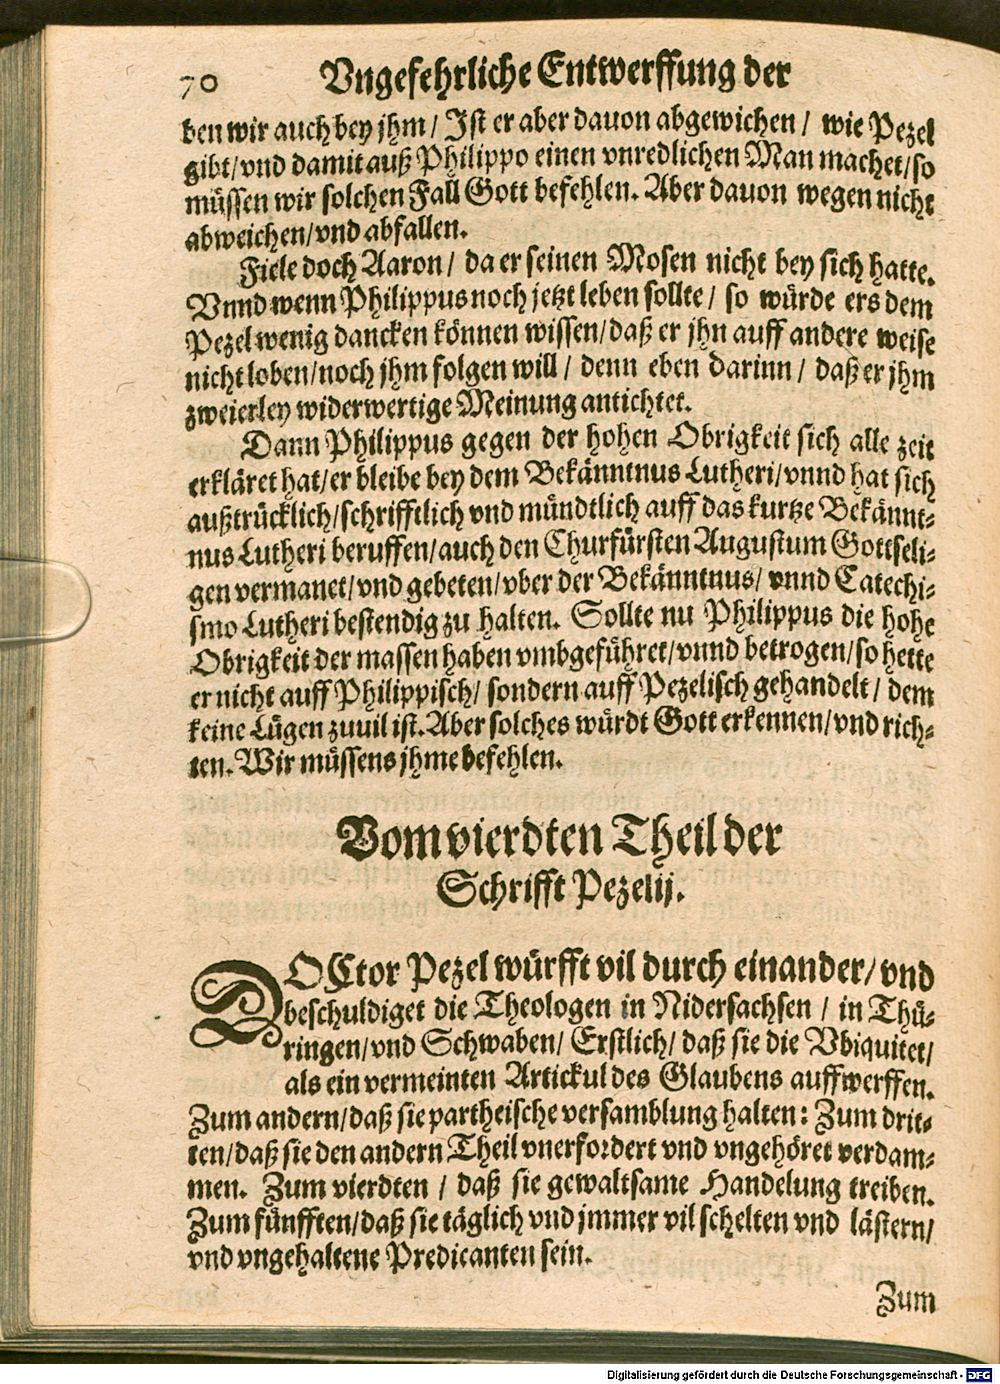 70 Vngefehrliche Entwerffung der
ben wir auch bey jhm / Ist er aber dauon abgewichen / wie Pezel
gibt/vnd damit auß Philippo einen vnredlichen Man machet/so
müssen wir solchen Fall Gott befehlen. Aber dauon wegen nicht
abweichen/vnd abfallen.
Fiele doch Aaron / da er seinen Mosen nicht bey sich hatte.
Vnnd wenn Philippus noch jetzt leben sollte / so würde ers dem
Pezel wenig dancken können wissen/daß er jhn auff andere weise
nicht loben/noch jhm folgen will / denn eben darinn / daß er jhm
zweierley widerwertige Meinung antichtet.
Dann Philippus gegen der hohen Obrigkeit sich alle zeit
erkläret hat/er bleibe bey dem Bekänntnus Lutheri/vnnd hat sich
außtrücklich/schrifftlich vnd mündtlich auff das kurtze Bekännt-
nus Lutheri beruffen/auch den Churfürsten Augustum Gottseli-
gen vermanet/vnd gebeten/vber der Bekänntnus/ vnnd Catechi-
smo Lutheri bestendig zu halten. Sollte nu Philippus die hohe
Obrigkeit der massen haben vmbgeführet/vnnd betrogen/so hette
er nicht auff Philippisch/ sondern auff Pezelisch gehandelt / dem
keine Lügen zuuil ist. Aber solches würdt Gott erkennen/vnd rich-
ten. Wir müssens jhme befehlen.
Vom vierdten Theil der
Schrifft Pezelij.
DOCtor Pezel würfft vil durch einander/vnd
beschuldiget die Theologen in Nidersachsen / in Thü-
ringen/vnd Schwaben/ Erstlich/ daß sie die Vbiquitet/
als ein vermeinten Artickul des Glaubens auffwerffen.
Zum andern/daß sie partheische versamblung halten: Zum drit-
ten/daß sie den andern Theil vnerfordert vnd vngehöret verdam-
men. Zum vierdten / daß sie gewaltsame Handelung treiben.
Zum fünfften/daß sie täglich vnd jmmer vil schelten vnd lästern/
vnd vngehaltene Predicanten sein.
Zum
Digitalisierung gefördert durch die Deutsche Forschungsgemeinschaft - DFG